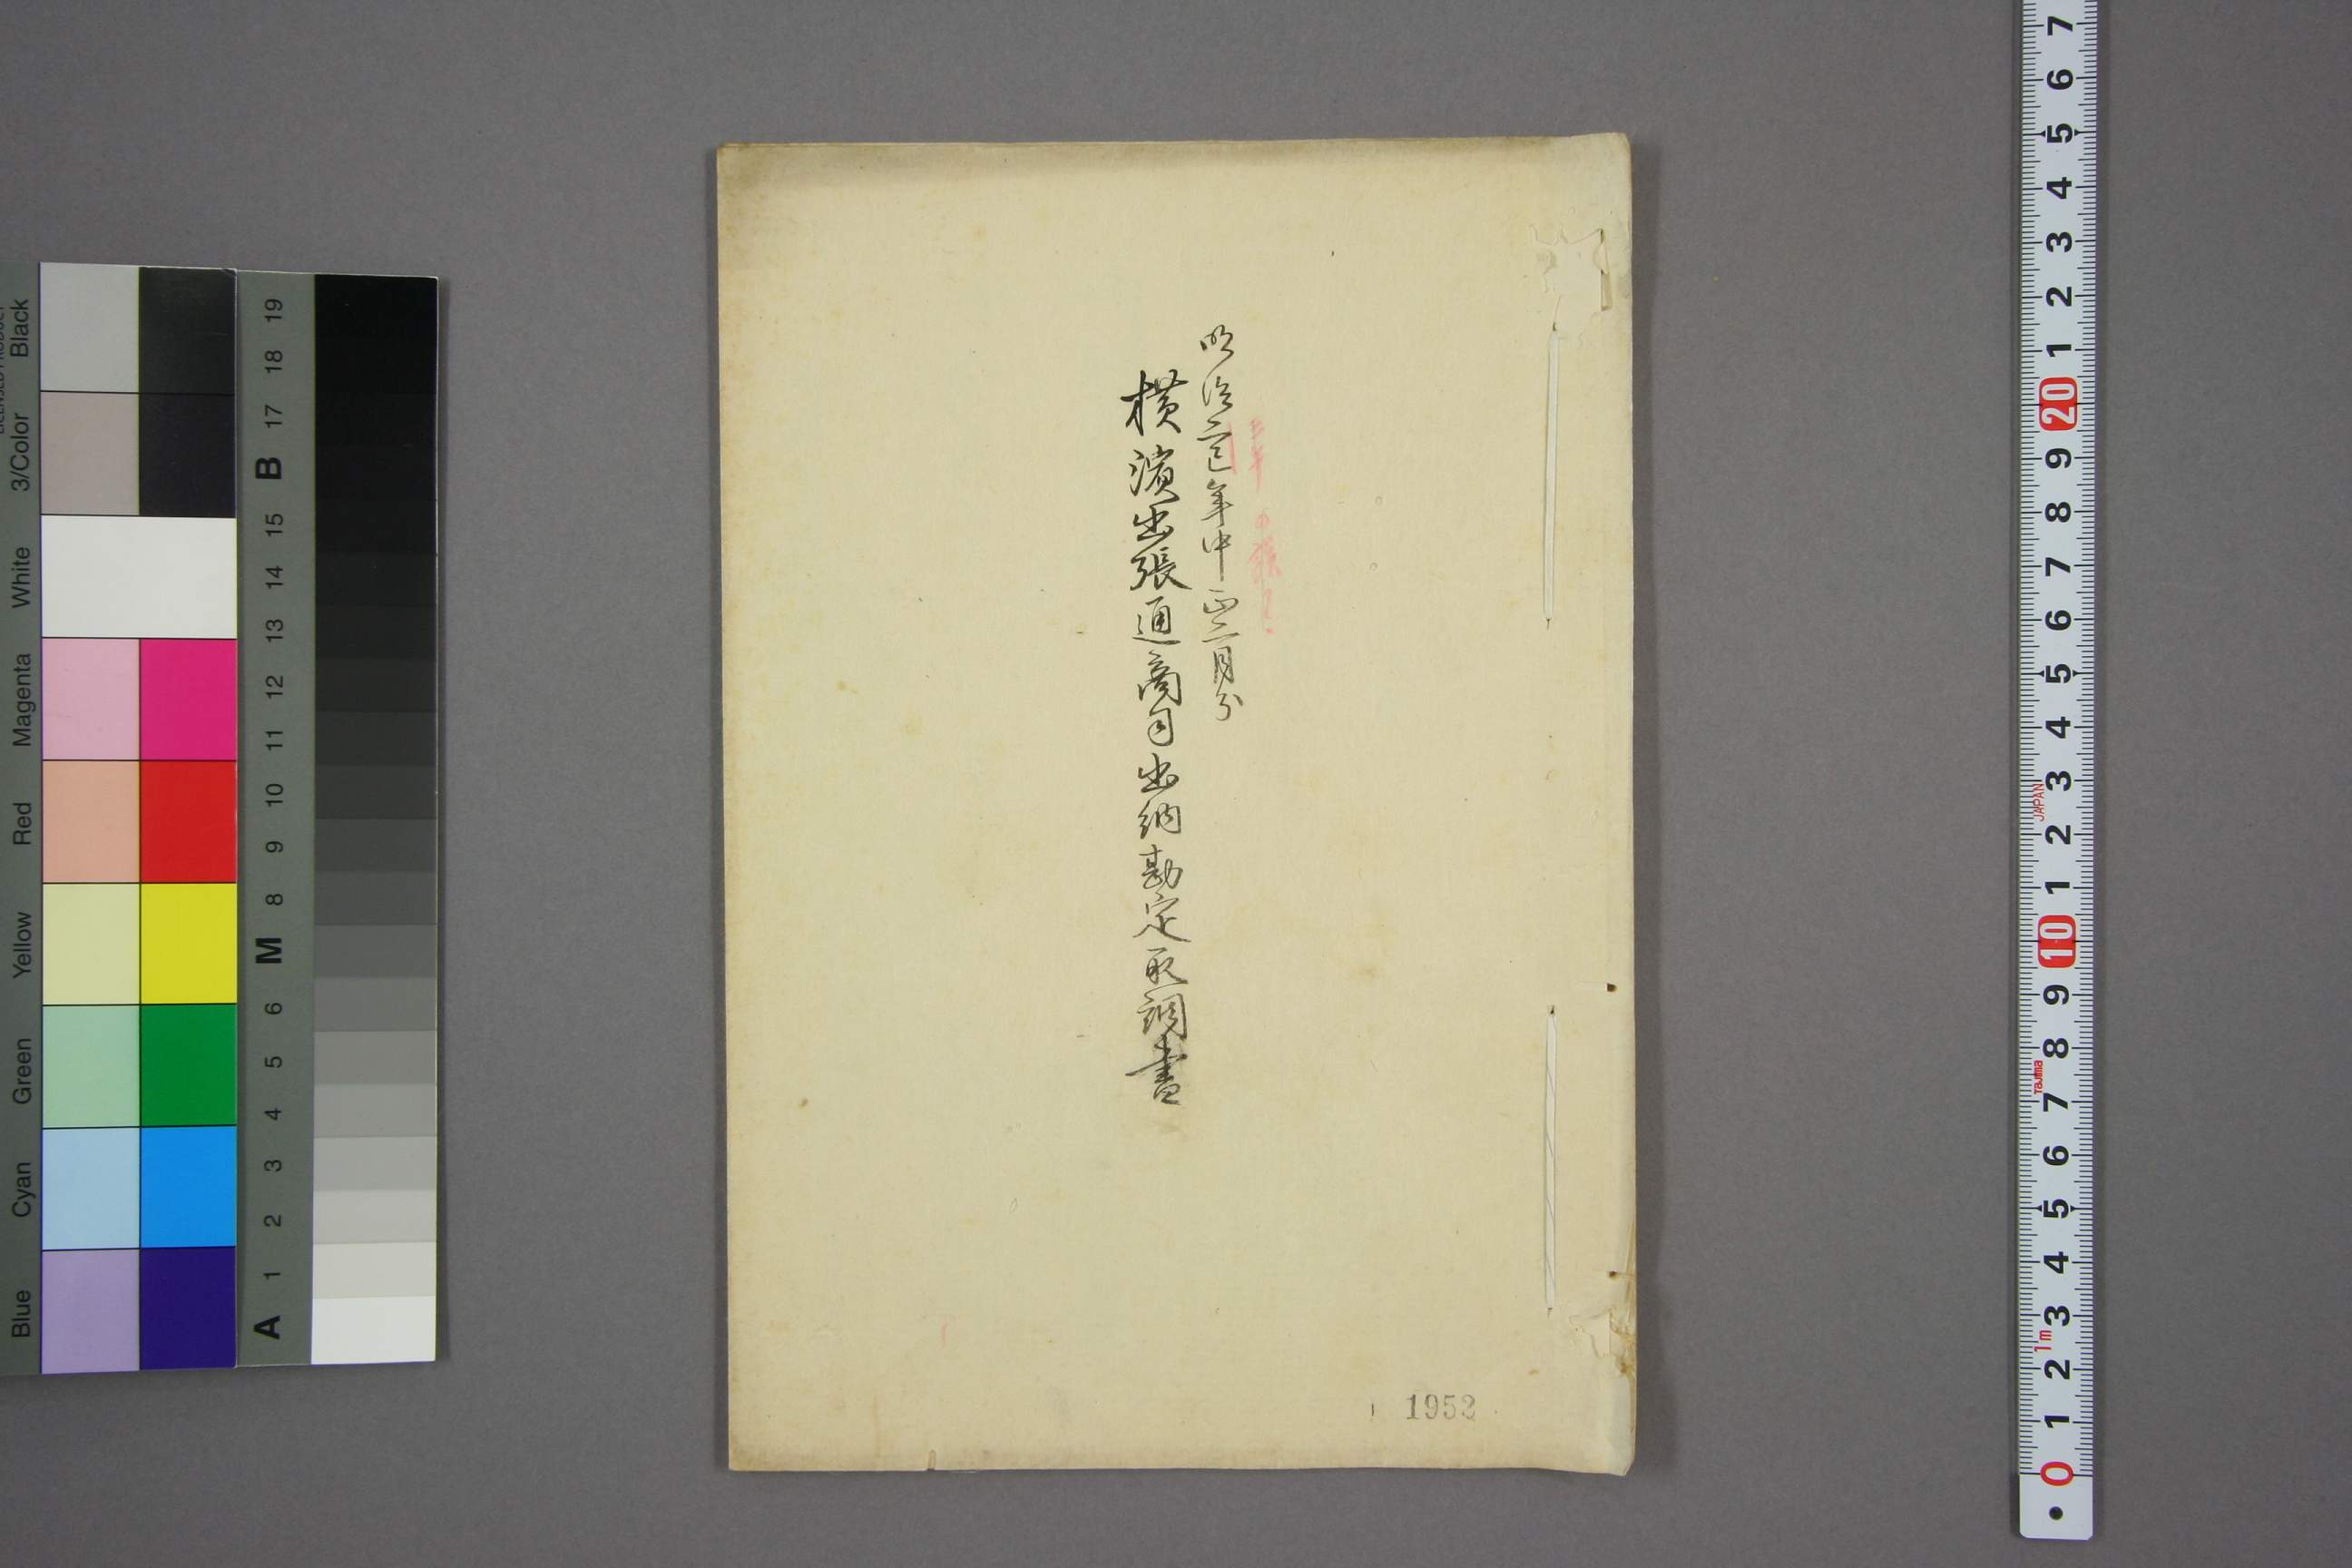 明治二巳年中正二月分
横濱出張通商司出納勘定取調書
1952
Black
3/Color
White
Magenta
Red
Yellow
Green
Cyan
Blue
19
18
17
B
15
14
13
12
11
10
9
8
M
6
5
4
3
2
1
A
7
6
5
4
3
2
1
20
9
8
7
6
5
4
3
JAPAN
2
1
10
9
8
Tajima
7
6
5
4
3
1m
2
1
0